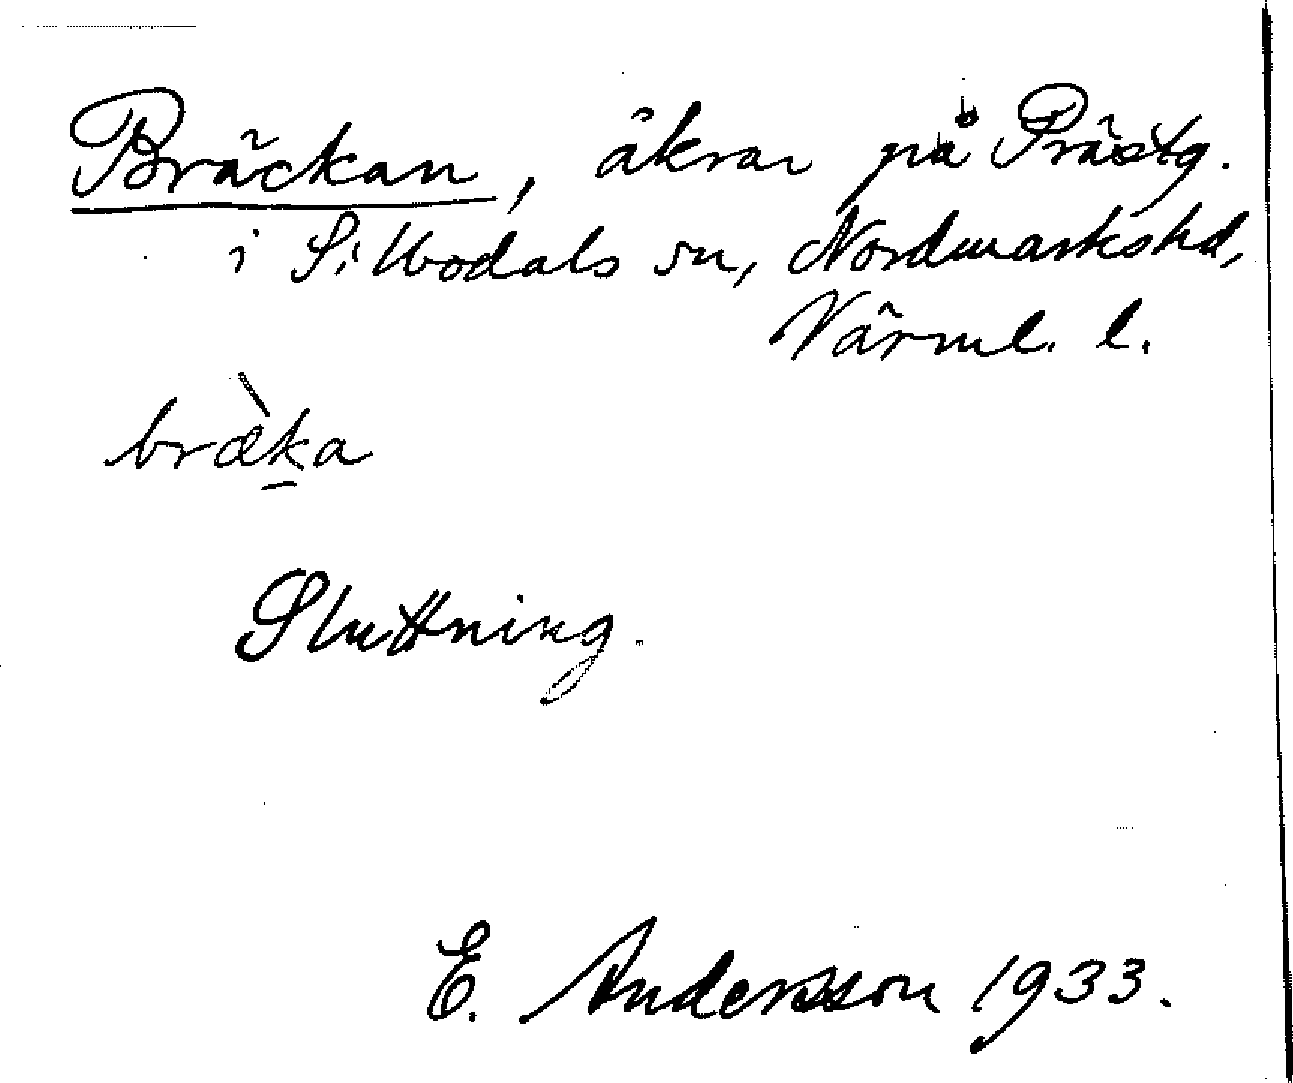 Bräckan, åkrar på Prästg.
i Sillbodals sn, Nordmarkshd,
Värml. l.
bræ̀ḵa
Sluttning.
E. Andersson 1933.